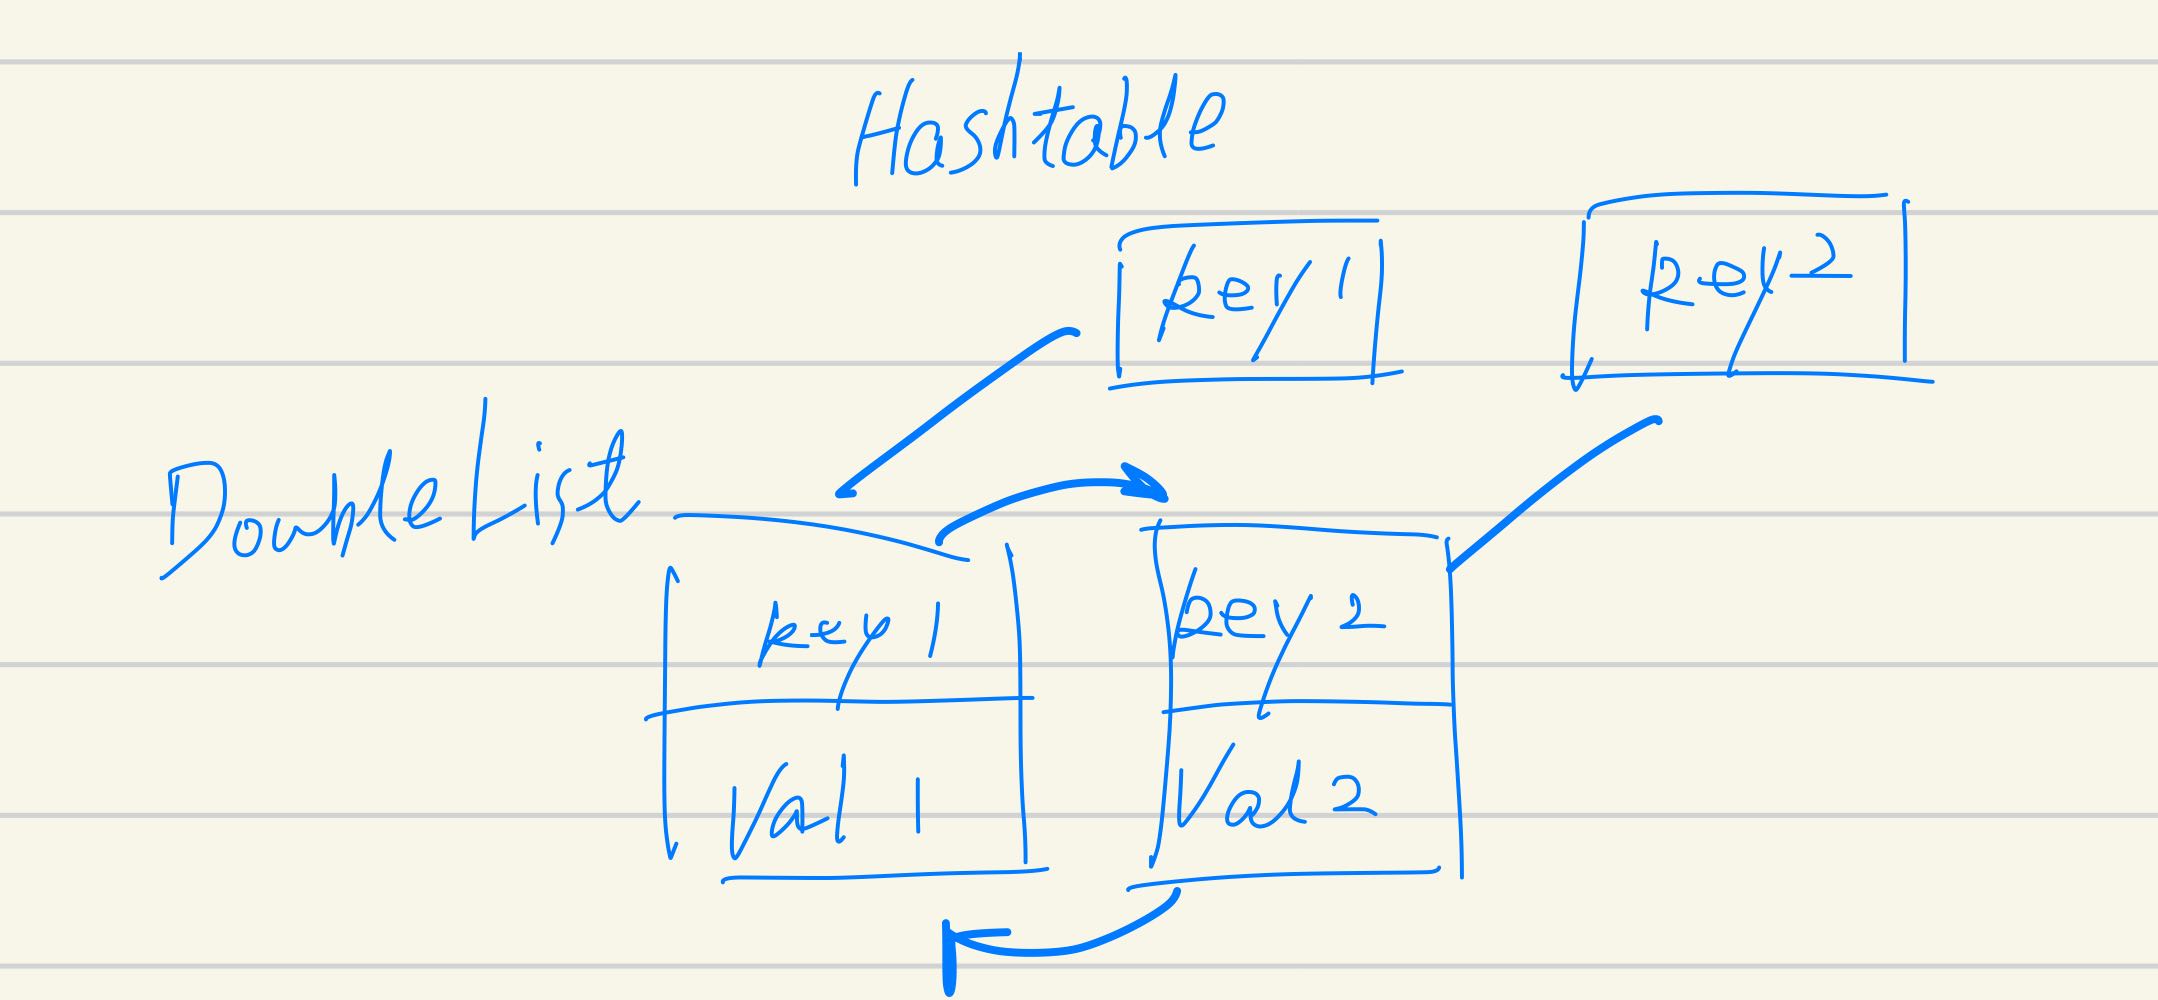 Hashtable
key 1
key 2
DoubleList
key 1
key 2
Val 1
Val 2